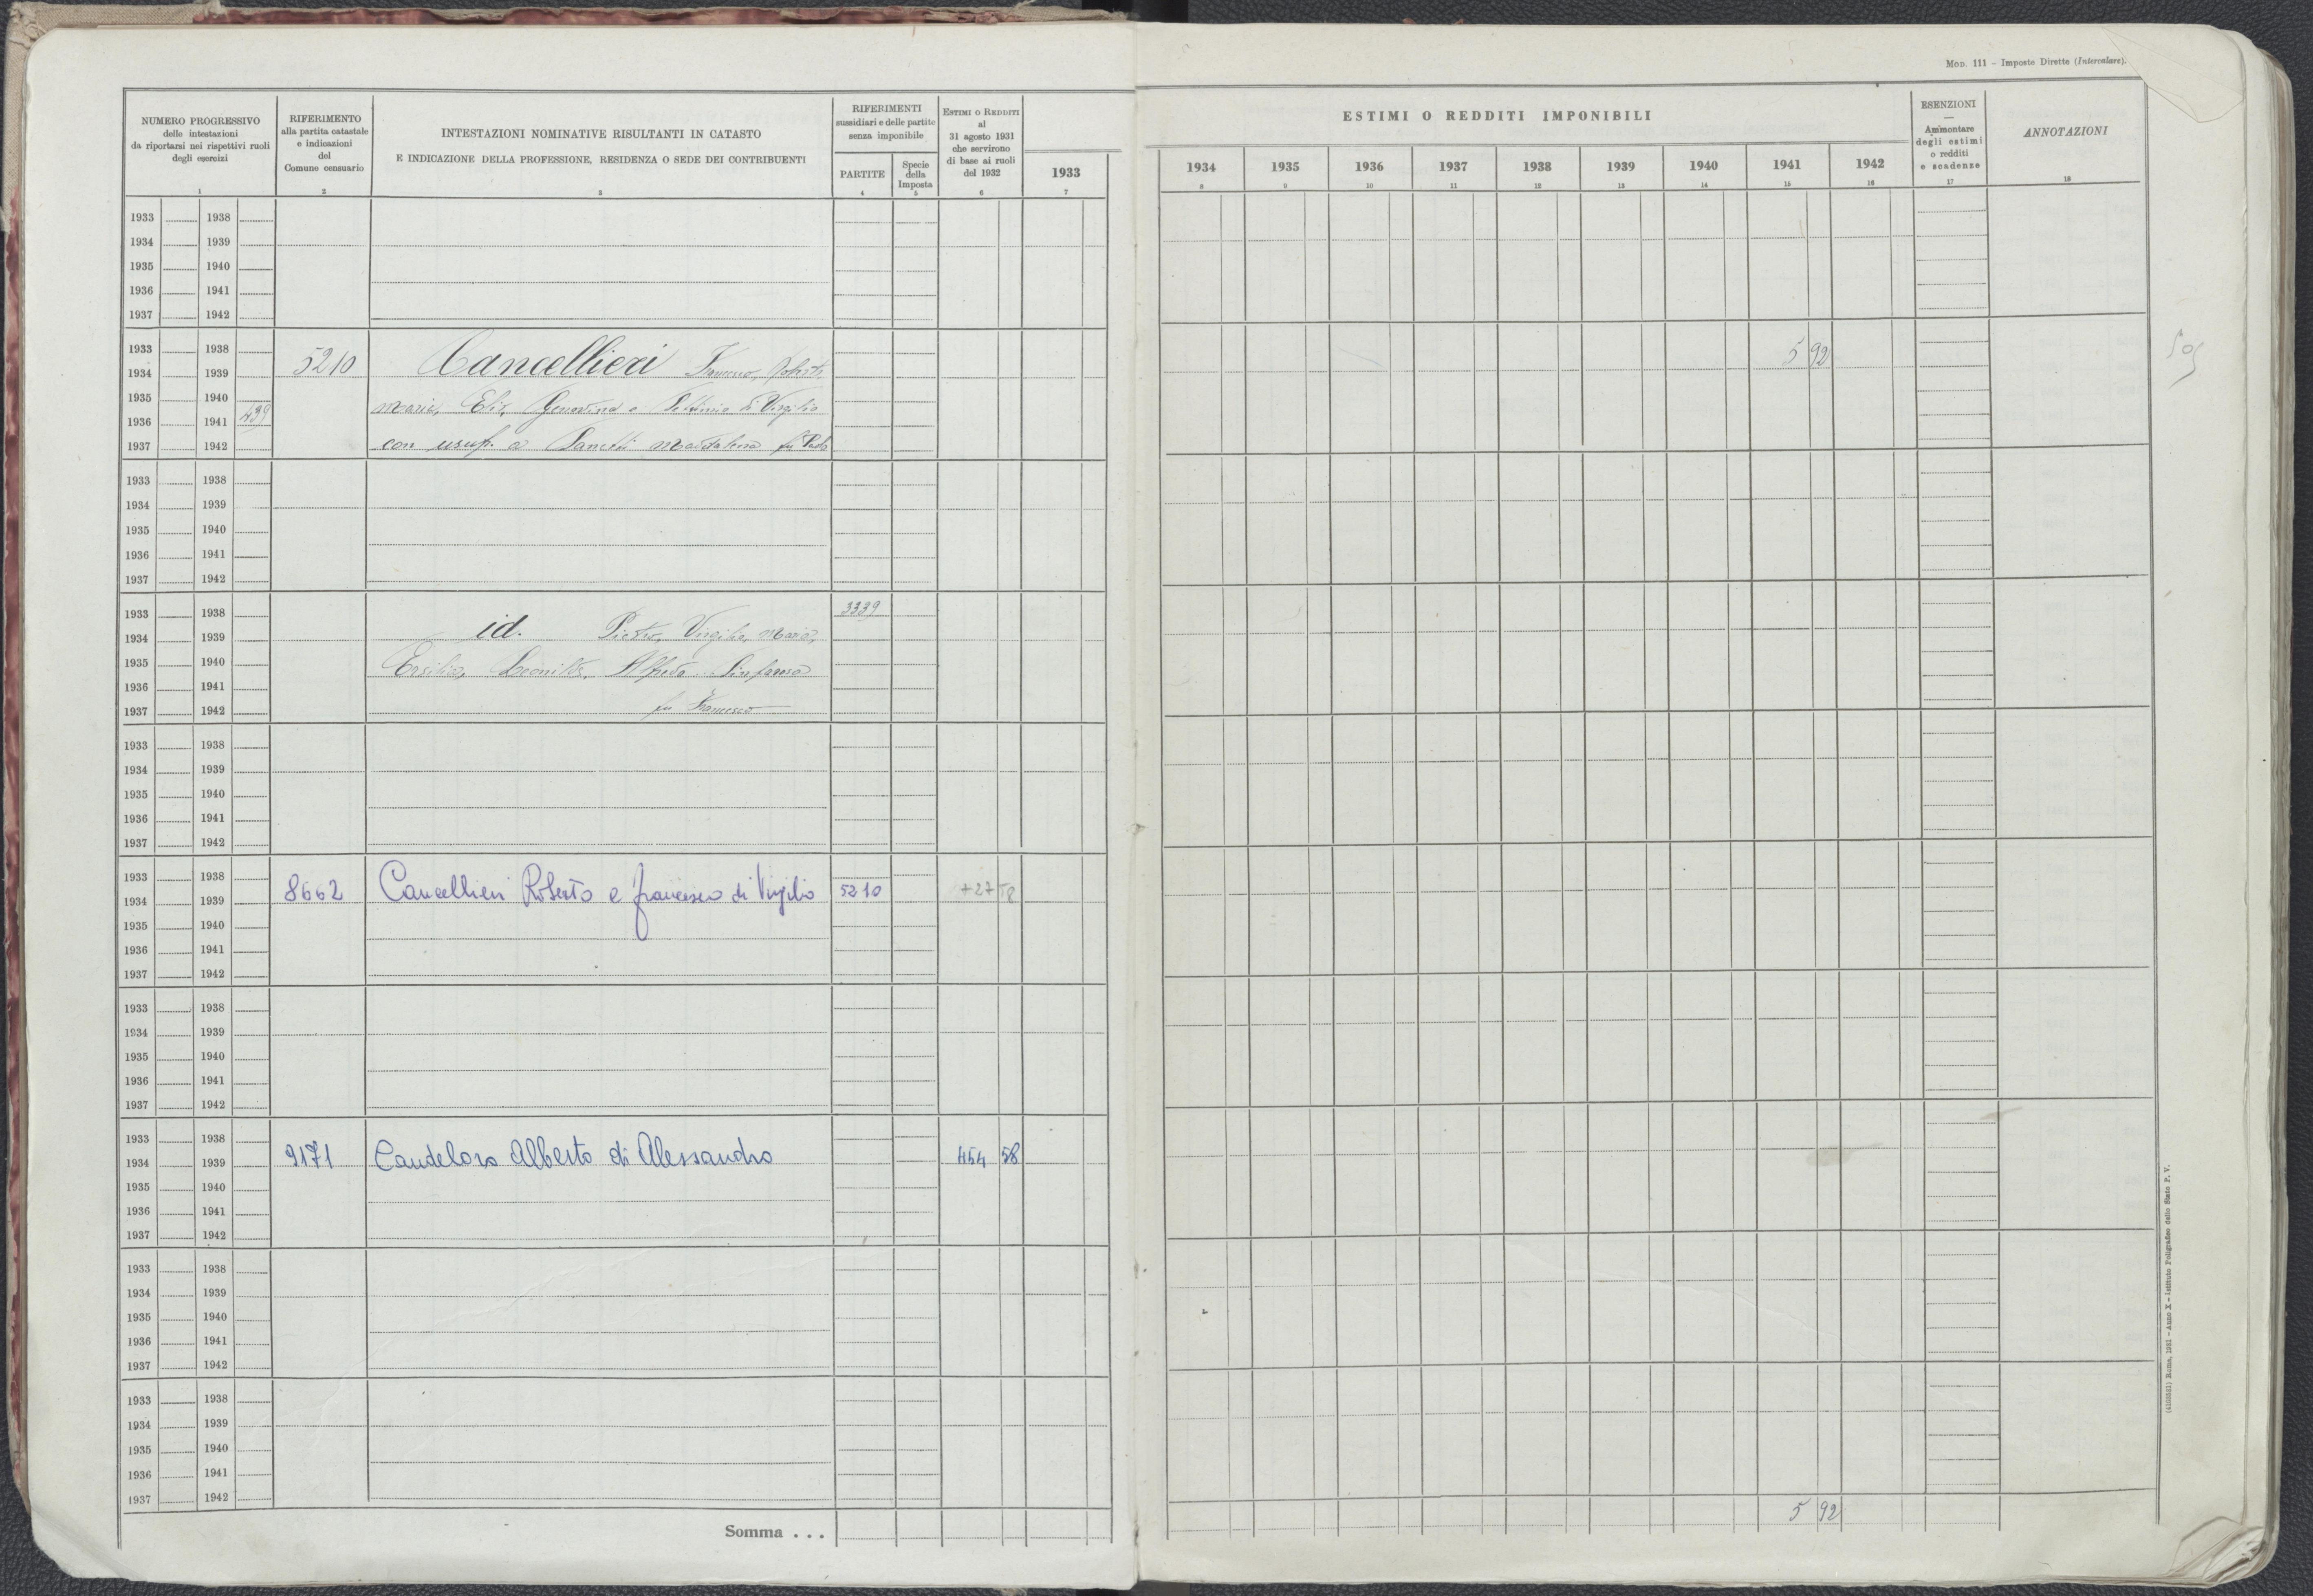 MOD. 111 – Imposte Dirette (Intercalare).
NUMERO PROGRESSIVO
delle intestazioni
da riportarsi nei rispettivi ruoli
degli esercizi
1
RIFERIMENTO
alla partita catastale
e indicazioni
del
Comune censuario
2
INTESTAZIONI NOMINATIVE RISULTANTI IN CATASTO
E INDICAZIONE DELLA PROFESSIONE, RESIDENZA O SEDE DEI CONTRIBUENTI
3
RIFERIMENTI
sussidiari e delle partite
senza imponibile
PARTITE
4
Specie
della
Imposta
5
ESTIMI O REDDITI
al
31 agosto 1931
che servirono
di base ai ruoli
del 1932
6
ESTIMI O REDDITI IMPONIBILI
1933 1934 1935 1936 1937 1938 1939 1940 1941 1942
7 8 9 10 11 12 13 14 15 16
ESENZIONI
—
Ammontare
degli estimi
o redditi
e scadenze
17
ANNOTAZIONI
18
1933 1938
1934 1939
1935 1940
1936 1941
1937 1942
1933 1938
1934 1939 5210 Cancellieri 5 92
1935 1940 Maria, Elia, e di Virgilio
1936 1941 439
1937 1942 con usuf. a Maddalena fu Paolo
509
1933 1938
1934 1939
1935 1940
1936 1941
1937 1942
1933 1938 3339
1934 1939 id. Pietro, Virgilio, Maria,
1935 1940 Ersilia, Leonilda, Alfredo Sinforosa
1936 1941
1937 1942 fu Francesco
1933 1938
1934 1939
1935 1940
1936 1941
1937 1942
1933 1938
1934 1939 8662 Cancellieri Roberto e francesco di Virgilio 5210 +27 58
1935 1940
1936 1941
1937 1942
1933 1938
1934 1939
1935 1940
1936 1941
1937 1942
1933 1938
1934 1939 9171 Candeloro Alberto di Alessandro 454 58
1935 1940
1936 1941
1937 1942
1933 1938
1934 1939
1935 1940
1936 1941
1937 1942
1933 1938
1934 1939
1935 1940
1936 1941
1937 1942
Somma . . . 5 92
Roma, 1931 – Anno X – Istituto Poligrafico dello Stato P. V.